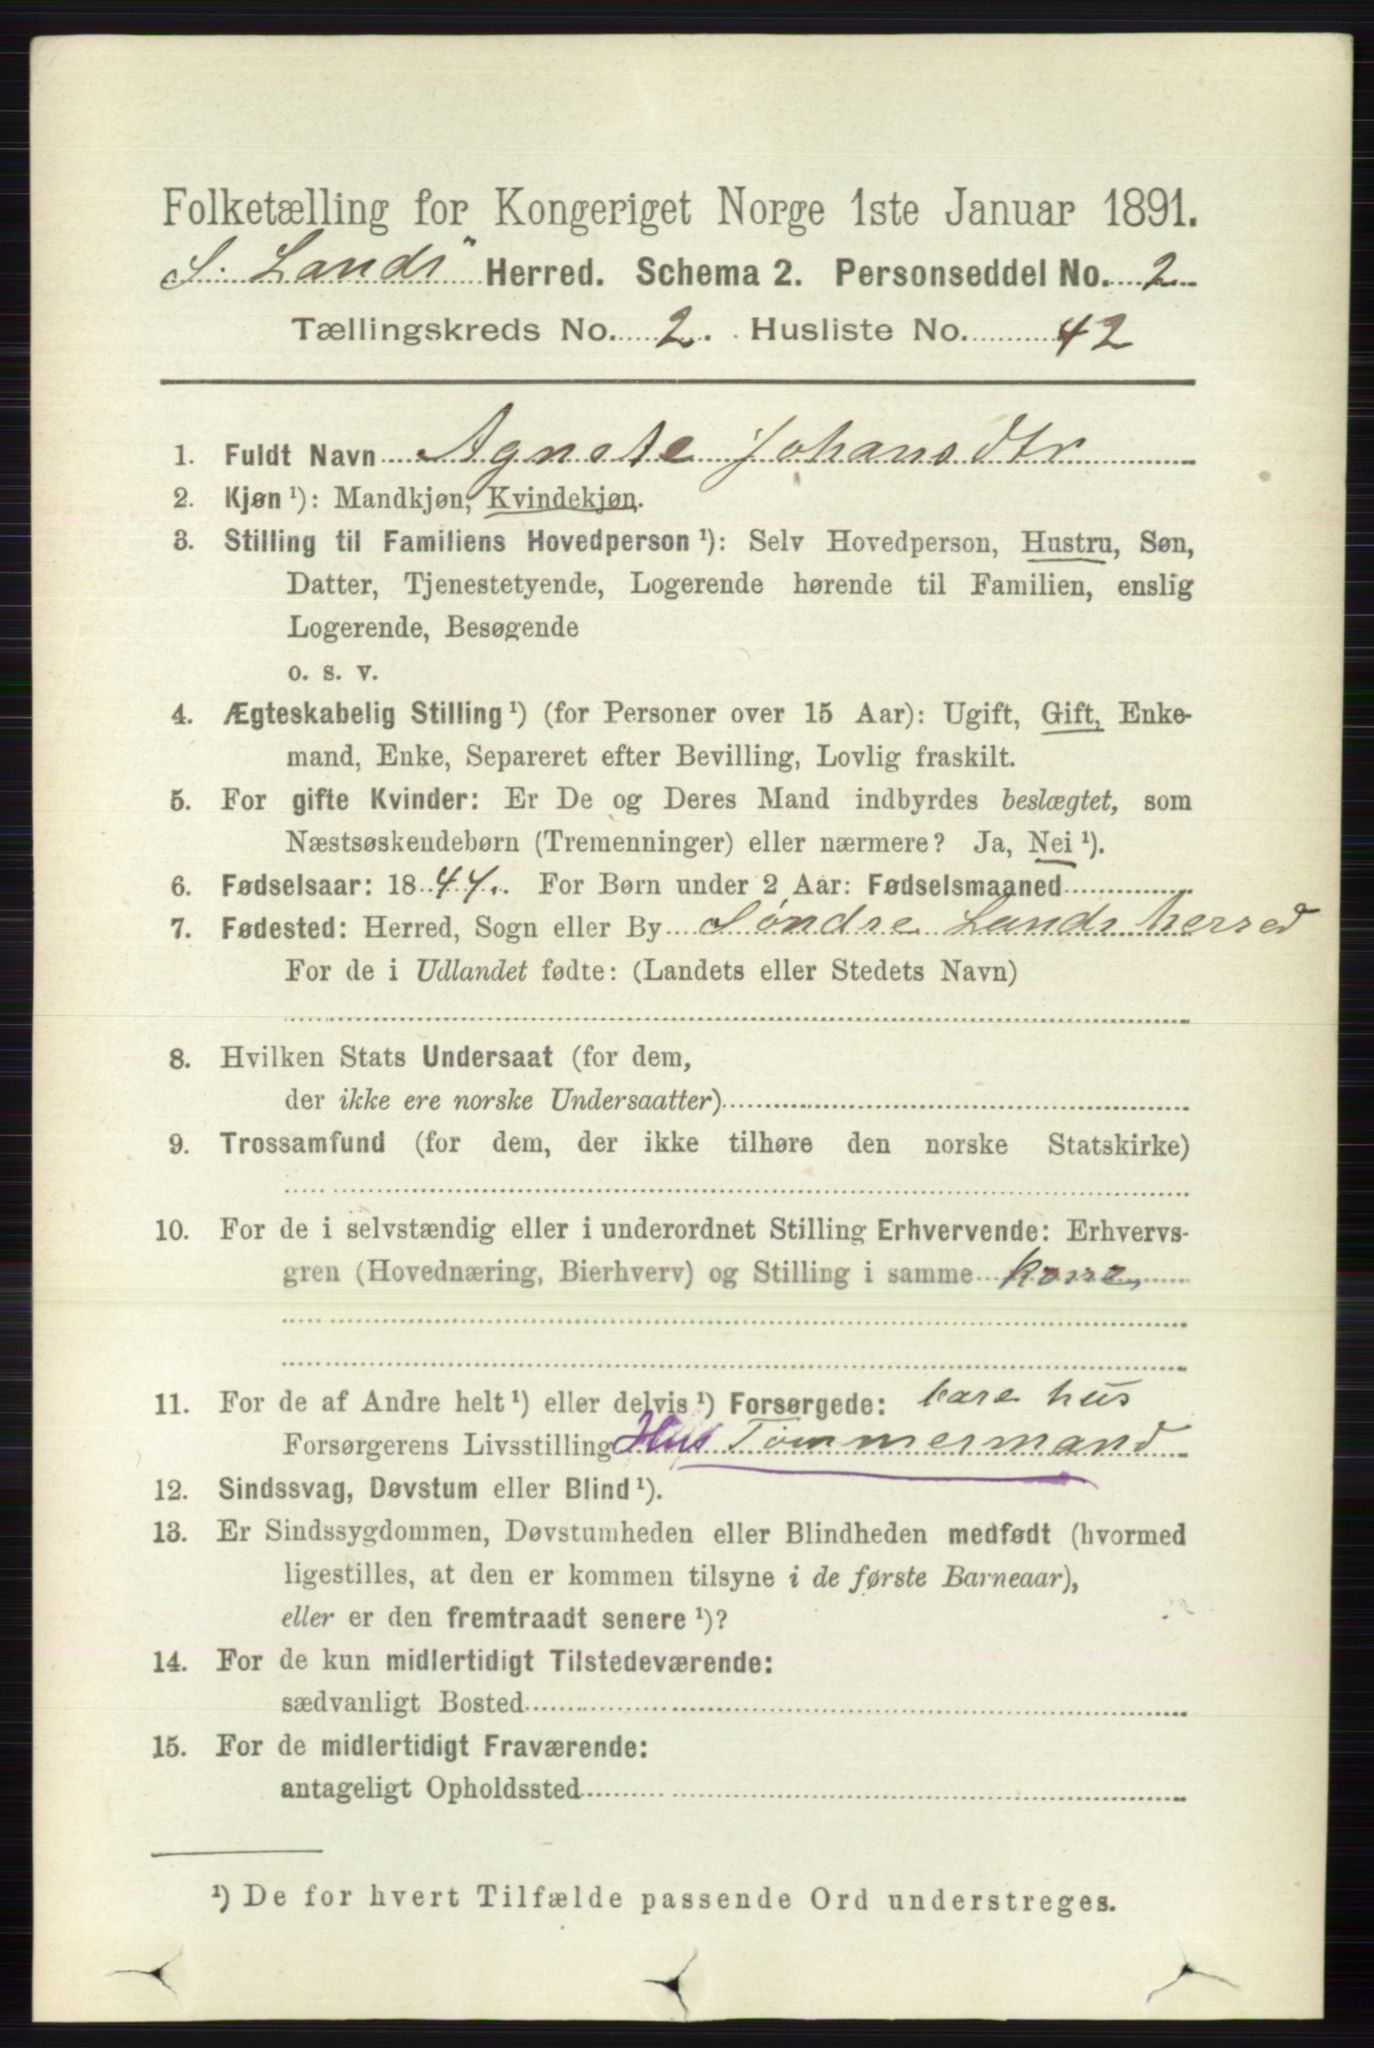 Folketælling for Kongeriget Norge 1ste Januar 1891.
S. Lands Herred. Schema 2. Personseddel No. 2
Tællingskreds No. 2. Husliste No. 42
1. Fuldt Navn Agnete Johansdtr
2. Kjøn ¹): Mandkjøn, Kvindekjøn.
3. Stilling til Familiens Hovedperson ¹): Selv Hovedperson, Hustru, Søn,
Datter, Tjenestetyende, Logerende hørende til Familien, enslig
Logerende, Besøgende
o. s. v.
4. Ægteskabelig Stilling ¹) (for Personer over 15 Aar): Ugift, Gift, Enke-
mand, Enke, Separeret efter Bevilling, Lovlig fraskilt.
5. For gifte Kvinder: Er De og Deres Mand indbyrdes beslægtet, som
Næstsøskendebørn (Tremenninger) eller nærmere? Ja, Nei ¹).
6. Fødselsaar: 1844. For Børn under 2 Aar: Fødselsmaaned
7. Fødested: Herred, Sogn eller By Søndre Lands herred
For de i Udlandet fødte: (Landets eller Stedets Navn)
8. Hvilken Stats Undersaat (for dem,
der ikke ere norske Undersaatter)
9. Trossamfund (for dem, der ikke tilhøre den norske Statskirke)
10. For de i selvstændig eller i underordnet Stilling Erhvervende: Erhvervs-
gren (Hovednæring, Bierhverv) og Stilling i samme
11. For de af Andre helt ¹) eller delvis ¹) Forsørgede: bare hus
Forsørgerens Livsstilling Hus Tømmermand
12. Sindssvag, Døvstum eller Blind ¹).
13. Er Sindssygdommen, Døvstumheden eller Blindheden medfødt (hvormed
ligestilles, at den er kommen tilsyne i de første Barneaar),
eller er den fremtraadt senere ¹)?
14. For de kun midlertidigt Tilstedeværende:
sædvanligt Bosted
15. For de midlertidigt Fraværende:
antageligt Opholdssted
¹) De for hvert Tilfælde passende Ord understreges.